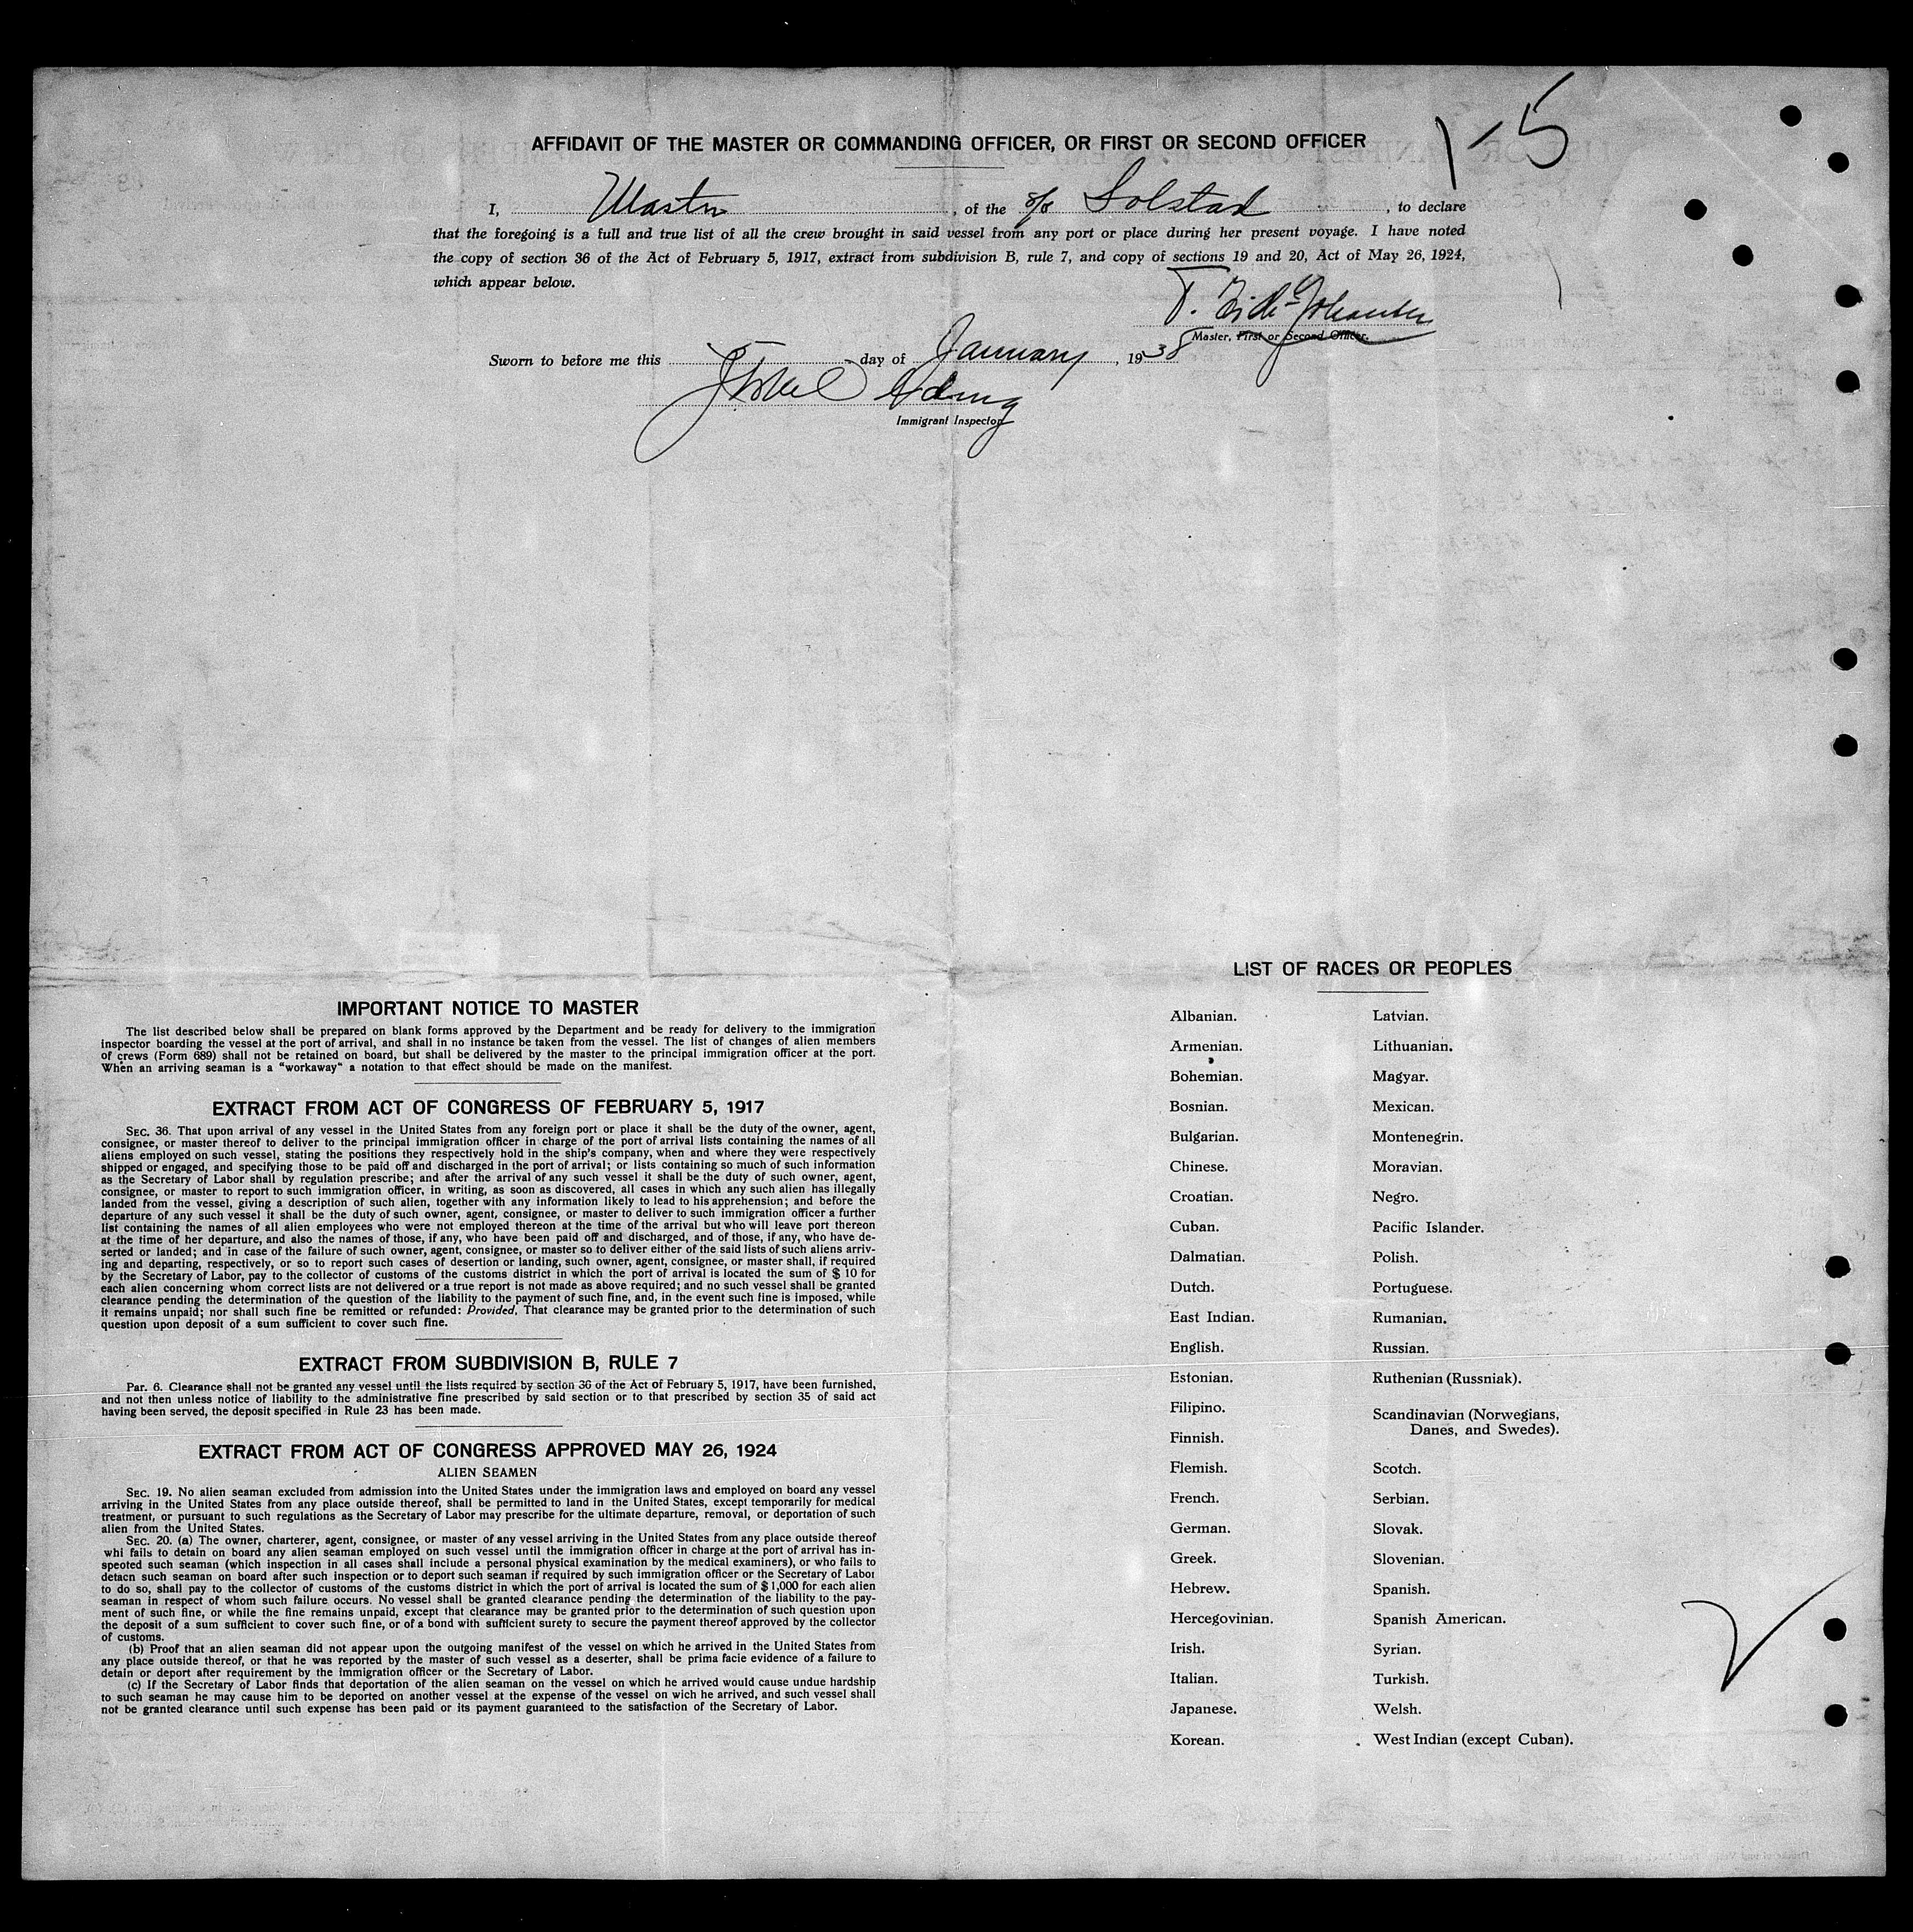 1-5
AFFIDAVIT OF THE MASTER OR COMMANDING OFFICER, OR FIRST OR SECOND OFFICER
I, Master, of the s/s Solstad, to declare
that the foregoing is a full and true list of all the crew brought in said vessel from any port or place during her present voyage. I have noted
the copy of section 36 of the Act of February 5, 1917, extract from subdivision B, rule 7, and copy of sections 19 and 20, Act of May 26, 1924,
which appear below.
Master, First or Second Officer.
Sworn to before me this day of January, 1938
Immigrant Inspector
IMPORTANT NOTICE TO MASTER
The list described below shall be prepared on blank forms approved by the Department and be ready for delivery to the immigration
inspector boarding the vessel at the port of arrival, and shall in no instance be taken from the vessel. The list of changes of alien members
of crews (Form 689) shall not be retained on board, but shall be delivered by the master to the principal immigration officer at the port.
When an arriving seaman is a "workaway" a notation to that effect should be made on the manifest.
EXTRACT FROM ACT OF CONGRESS OF FEBRUARY 5, 1917
SEC. 36. That upon arrival of any vessel in the United States from any foreign port or place it shall be the duty of the owner, agent,
consignee, or master thereof to deliver to the principal immigration officer in charge of the port of arrival lists containing the names of all
aliens employed on such vessel, stating the positions they respectively hold in the ship's company, when and where they were respectively
shipped or engaged, and specifying those to be paid off and discharged in the port of arrival; or lists containing so much of such information
as the Secretary of Labor shall by regulation prescribe; and after the arrival of any such vessel it shall be the duty of such owner, agent,
consignee, or master to report to such immigration officer, in writing, as soon as discovered, all cases in which any such alien has illegally
landed from the vessel, giving a description of such alien, together with any information likely to lead to his apprehension; and before the
departure of any such vessel it shall be the duty of such owner, agent, consignee, or master to deliver to such immigration officer a further
list containing the names of all alien employees who were not employed thereon at the time of the arrival but who will leave port thereon
at the time of her departure, and also the names of those, if any, who have been paid off and discharged, and of those, if any, who have de-
serted or landed; and in case of the failure of such owner, agent, consignee, or master so to deliver either of the said lists of such aliens arriv-
ing and departing, respectively, or so to report such cases of desertion or landing, such owner, agent, consignee, or master shall, if required
by the Secretary of Labor, pay to the collector of customs of the customs district in which the port of arrival is located the sum of $ 10 for
each alien concerning whom correct lists are not delivered or a true report is not made as above required; and no such vessel shall be granted
clearance pending the determination of the question of the liability to the payment of such fine, and, in the event such fine is imposed, while
it remains unpaid; nor shall such fine be remitted or refunded: Provided, That clearance may be granted prior to the determination of such
question upon deposit of a sum sufficient to cover such fine.
EXTRACT FROM SUBDIVISION B, RULE 7
Par. 6. Clearance shall not be granted any vessel until the lists required by section 36 of the Act of February 5, 1917, have been furnished,
and not then unless notice of liability to the administrative fine prescribed by said section or to that prescribed by section 35 of said act
having been served, the deposit specified in Rule 23 has been made.
EXTRACT FROM ACT OF CONGRESS APPROVED MAY 26, 1924
ALIEN SEAMEN
SEC. 19. No alien seaman excluded from admission into the United States under the immigration laws and employed on board any vessel
arriving in the United States from any place outside thereof, shall be permitted to land in the United States, except temporarily for medical
treatment, or pursuant to such regulations as the Secretary of Labor may prescribe for the ultimate departure, removal, or deportation of such
alien from the United States.
SEC. 20. (a) The owner, charterer, agent, consignee, or master of any vessel arriving in the United States from any place outside thereof
whi fails to detain on board any alien seaman employed on such vessel until the immigration officer in charge at the port of arrival has in-
speoted such seaman (which inspection in all cases shall include a personal physical examination by the medical examiners), or who fails to
detacn such seaman on board after such inspection or to deport such seaman if required by such immigration officer or the Secretary of Labor
to do so, shall pay to the collector of customs of the customs district in which the port of arrival is located the sum of $ 1,000 for each alien
seaman in respect of whom such failure occurs. No vessel shall be granted clearance pending the determination of the liability to the pay-
ment of such fine, or while the fine remains unpaid, except that clearance may be granted prior to the determination of such question upon
the deposit of a sum sufficient to cover such fine, or of a bond with sufficient surety to secure the payment thereof approved by the collector
of customs.
(b) Proof that an alien seaman did not appear upon the outgoing manifest of the vessel on which he arrived in the United States from
any place outside thereof, or that he was reported by the master of such vessel as a deserter, shall be prima facie evidence of a failure to
detain or deport after requirement by the immigration officer or the Secretary of Labor.
(c) If the Secretary of Labor finds that deportation of the alien seaman on the vessel on which he arrived would cause undue hardship
to such seaman he may cause him to be deported on another vessel at the expense of the vessel on wich he arrived, and such vessel shall
not be granted clearance until such expense has been paid or its payment guaranteed to the satisfaction of the Secretary of Labor.
LIST OF RACES OR PEOPLES
Albanian.
Armenian.
Bohemian.
Bosnian.
Bulgarian.
Chinese.
Croatian.
Cuban.
Dalmatian.
Dutch.
East Indian.
English.
Estonian.
Filipino.
Finnish.
Flemish.
French.
German.
Greek.
Hebrew.
Hercegovinian.
Irish.
Italian.
Japanese.
Korean.
Latvian.
Lithuanian.
Magyar.
Mexican.
Montenegrin.
Moravian.
Negro.
Pacific Islander.
Polish.
Portuguese.
Rumanian.
Russian.
Ruthenian (Russniak).
Scandinavian (Norwegians,
Danes, and Swedes).
Scotch.
Serbian.
Slovak.
Slovenian.
Spanish.
Spanish American.
Syrian.
Turkish.
Welsh.
West Indian (except Cuban).